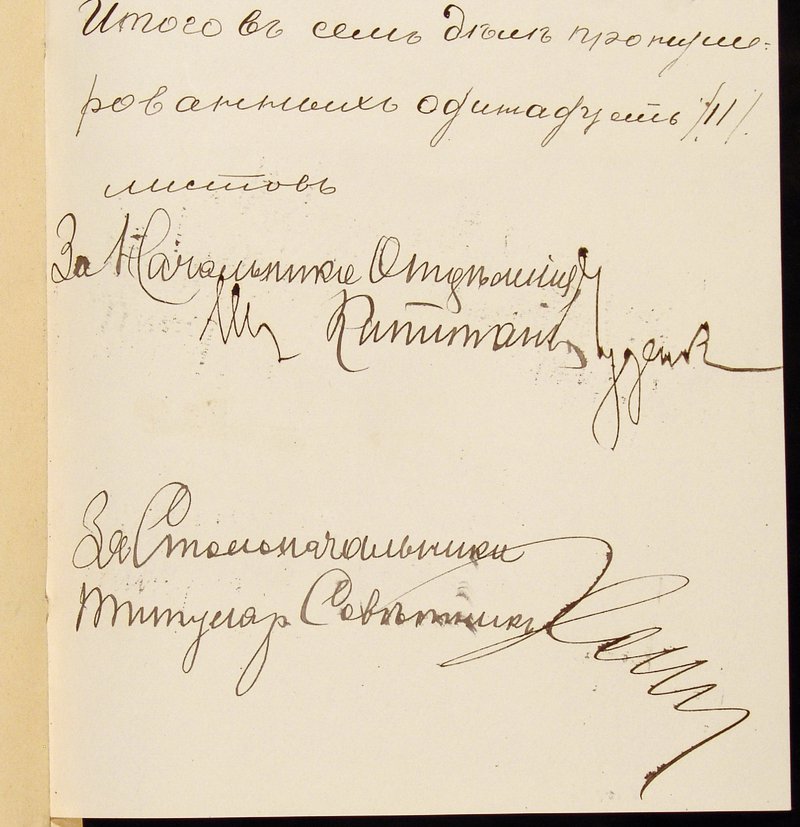 Итого въ семъ дѣлѣ пронуме-
рованныхъ одинадцать /11/
листовъ
За Начальника Отдѣленія
Шт Капитанъ
За Столоначальника
Титуляр Совѣтникъ